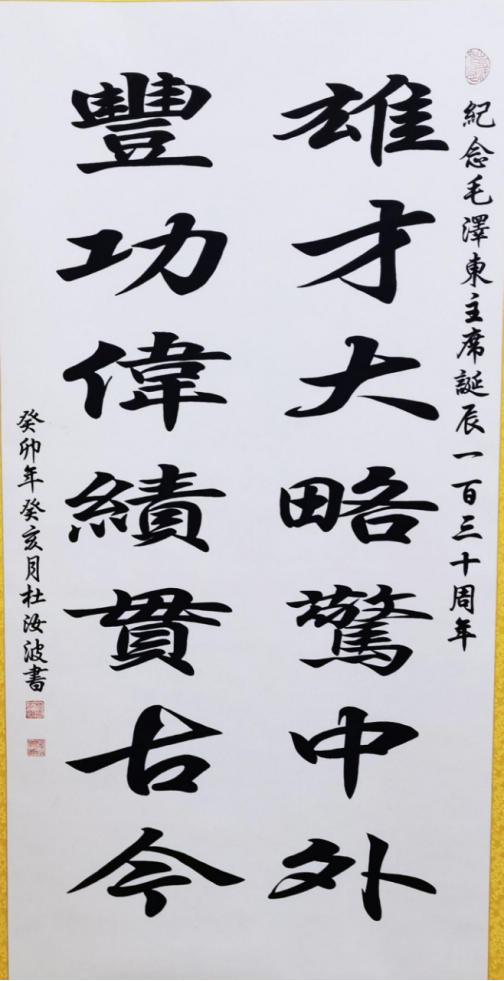 紀念毛澤東主席誕辰一百三十周年
雄才大略驚中外
豐功偉績貫古今
癸卯年癸亥月杜汝波書